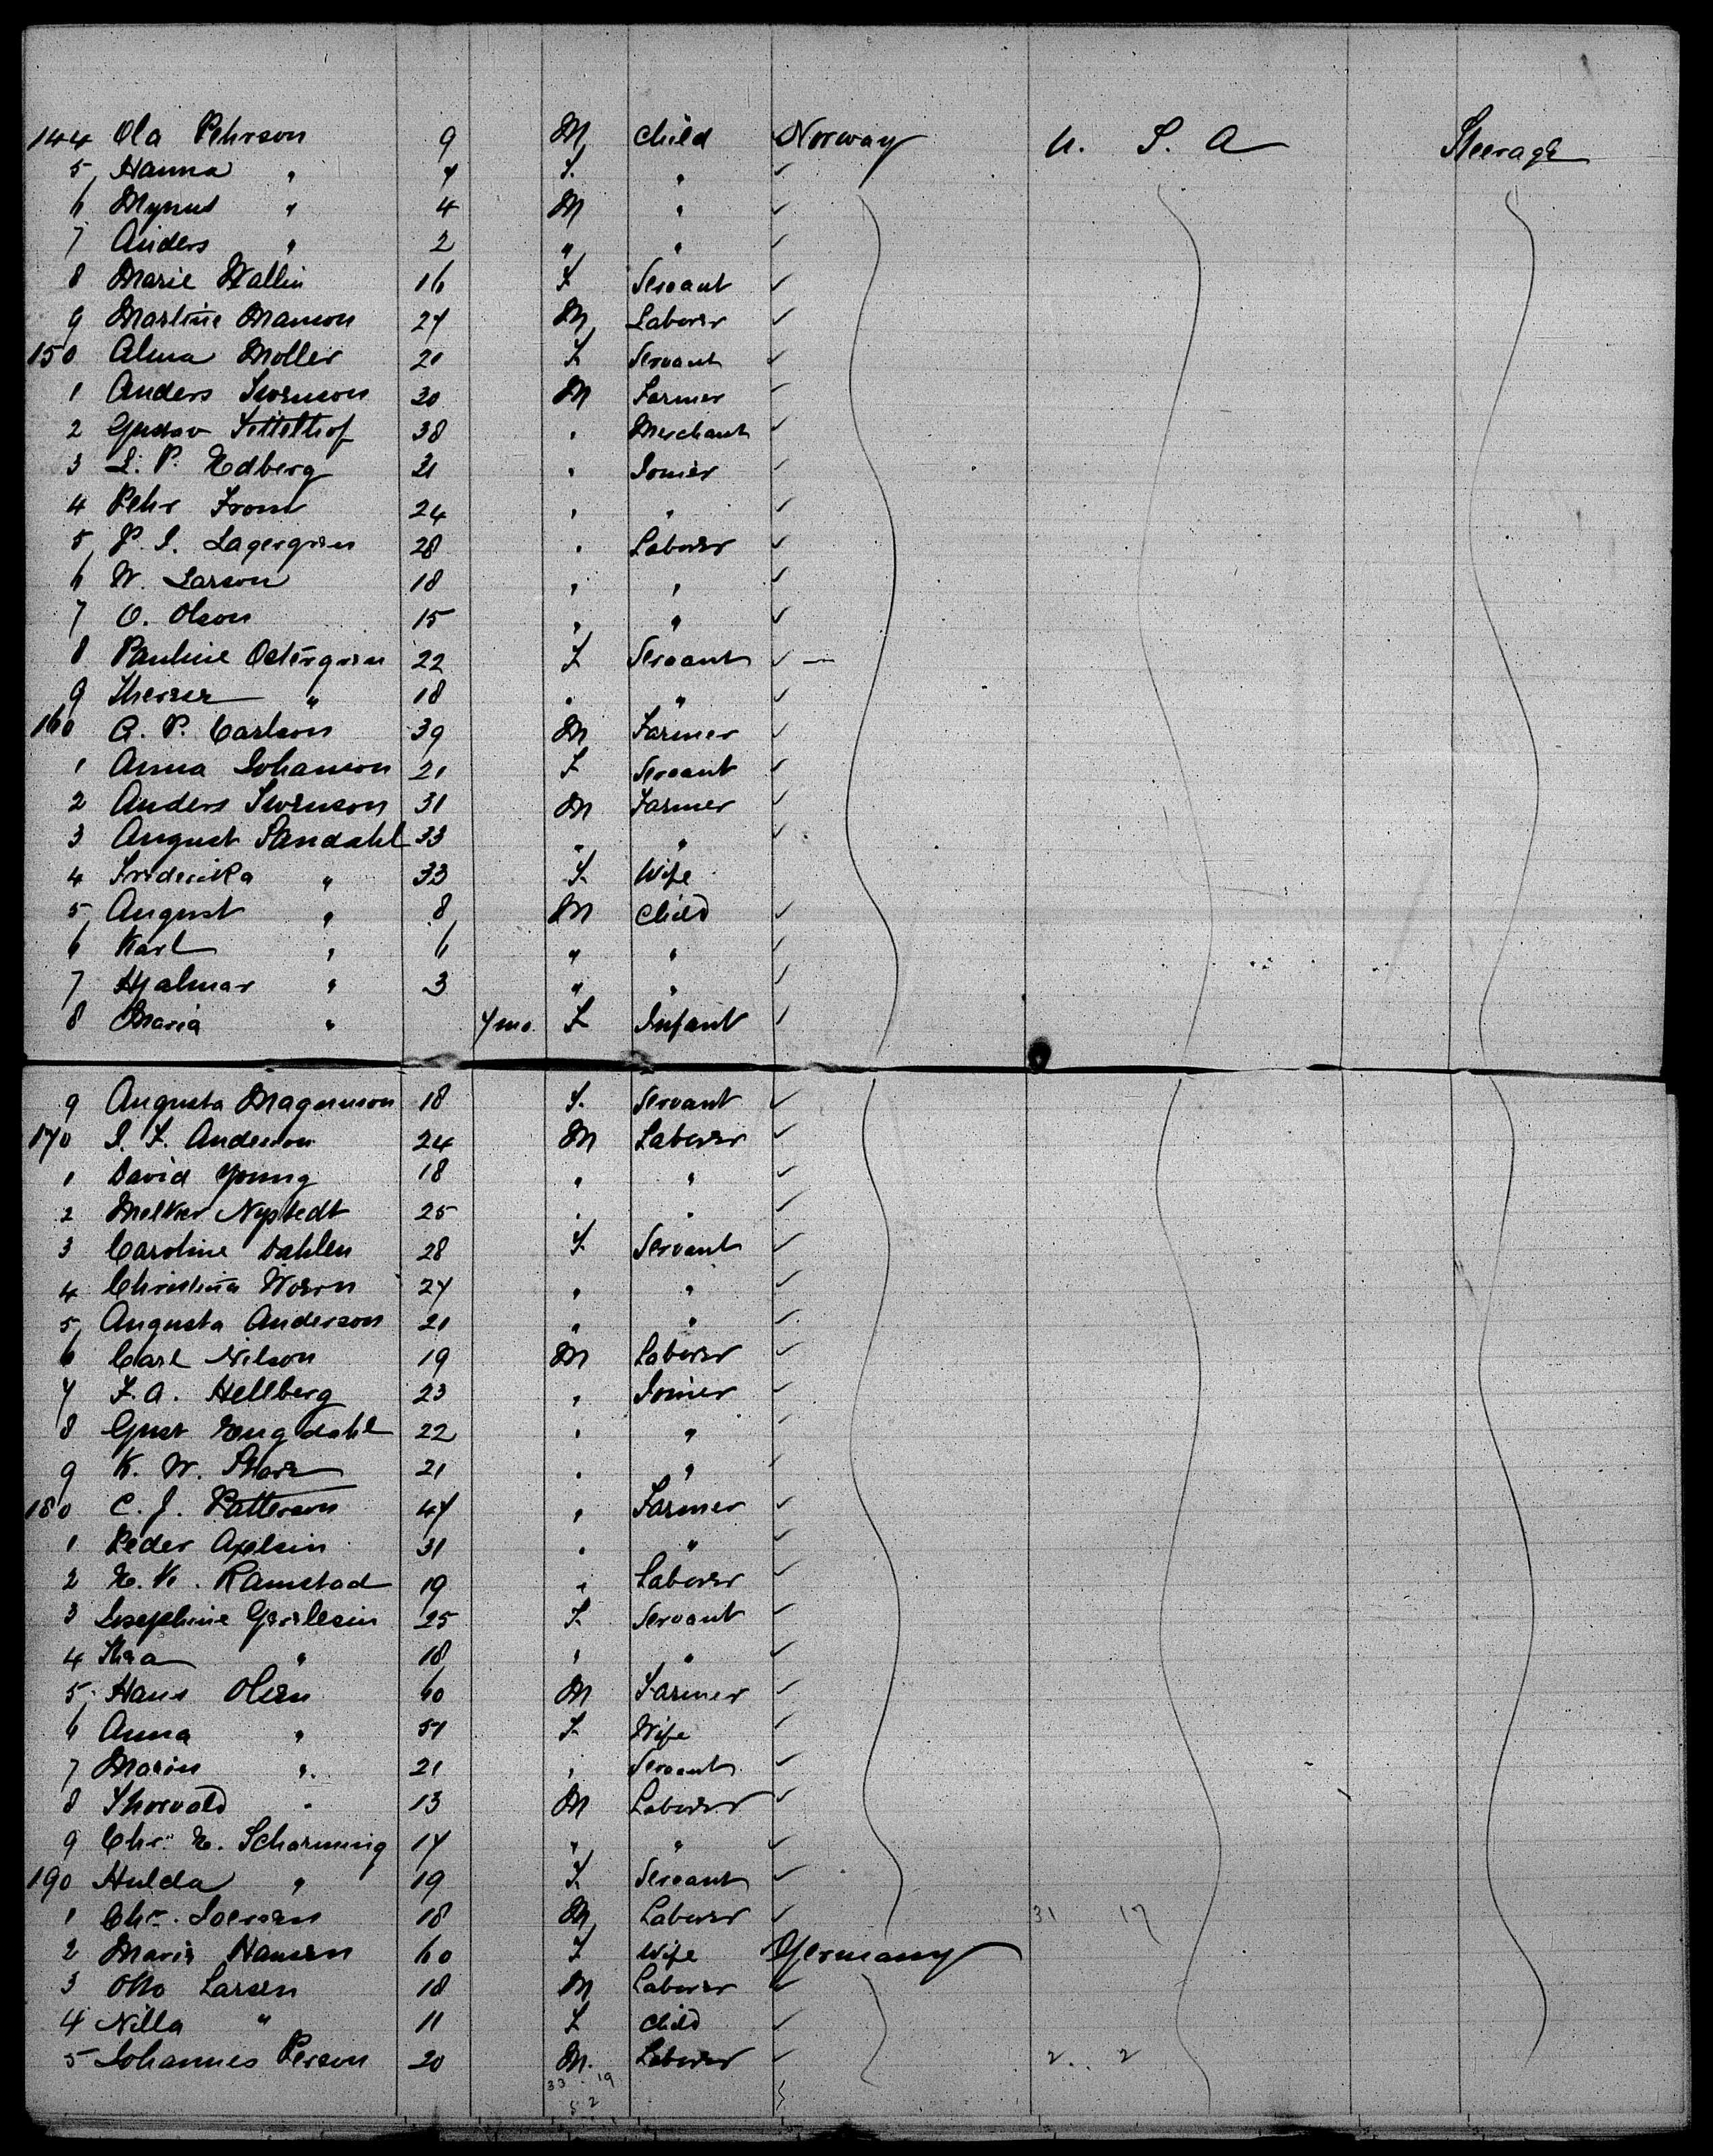 144 Ola Pehrson 9 M Child Norway U. S. A Steerage
5 Hanna " 7 F. "
6 Mynus " 4 M "
7 Anders " 2 " "
8 Marie Wallin 16 F Servant
9 Martine Manson 27 M Laborer
150 Alma Moller 21 F Servant
1 Anders Swenson 30 M Farmer
2 Gustav 38 " Merchant
3 L. P. Edberg 21 " Joiner
4 Pehr From 24 " "
5 P. J. Lagergren 28 " Laborer
6 W. Larson 18 " "
7 O. Olson 15 " "
8 Pauline Ostergren 22 F Servant
9 Therese " 18 " "
160 C. P. Carlson 39 M Farmer
1 Anna Johanson 21 F Servant
2 Anders Swenson 31 M Farmer
3 August Sandahl 33 " "
4 Frederika " 33 F. Wife
5 August " 8 M Child
6 Karl " 6 " "
7 Hjalmar " 3 " "
8 Maria " 7 mo. F Infant
9 Augusta Magnuson 18 F. Servant
170 J. F. Anderson 24 M Laborer
1 David Young 18 " "
2 Melker Nystedt 25 " "
3 Caroline Dahlen 28 F. Servant
4 Christina 27 " "
5 Augusta Anderson 21 " "
6 Carl Nilson 19 M Laborer
7 F. A. Hellberg 23 " Joiner
8 Gust Engdahl 22 " "
9 K. W. 21 " "
180 C. J. Patterson 47 " Farmer
1 Peder Axelsin 31 " "
2 E. K. Ramstad 19 " Laborer
3 Josephine 25 F. Servant
4 Thea " 18 " "
5 Hans Olsen 60 M Farmer
6 Anna " 57 F. Wife
7 Maren " 21 " Servant
8 Thorvald " 13 M Laborer
9 Chr. E. Scharnning 17 " "
190 Hulda " 19 F. Servant
1 Chr. 18 M Laborer 31 17
2 Marie Hansen 60 F Wife Germany
3 Otto Larsen 18 M Laborer
4 Nilla " 11 F Child
5 Johannes Person 20 M. Laborer 2 2
33 19
5 2